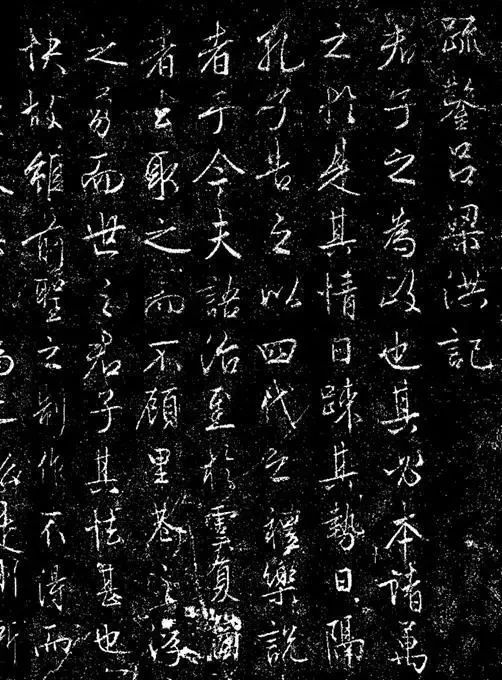 疏鑿呂梁洪記
君子之為政也其必本諸萬
之於是其情日疎其勢日隔
孔子告之以四代之禮樂說
者乎今夫語治至於虞夏商
者取之而不顧里巷之浮
之而世之君子其怯甚也
快故雖前聖之制作不得而